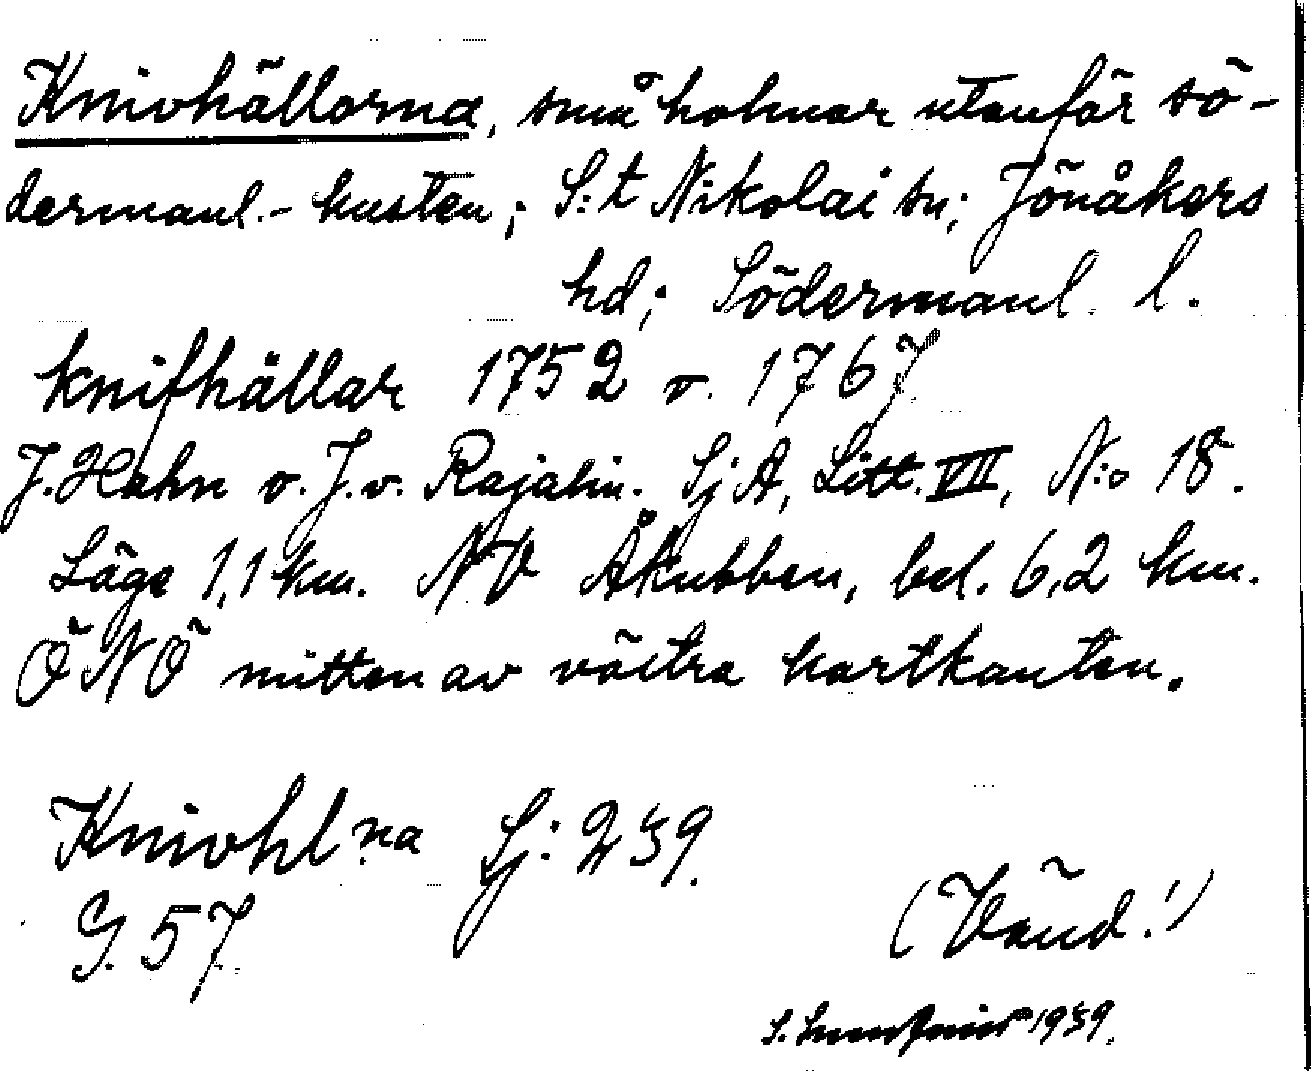 Knivhällorna, små holmar utanför sö-
dermanl.- kusten; S:t Nikolai sn; Jönåkers
hd; Södermanl. l.
knifhällar 1752 o. 1767
J. Hahn o. J. v. Rajalin. SjA, Litt. VII, N:o 18.
Läge 1,1 km. NV Åkubben, bel. 6,2 km.
ÖNÖ mitten av västra kartkanten.
Knivhl:na Sj: 239.
G. 57
(Vänd!)
S. 1939.